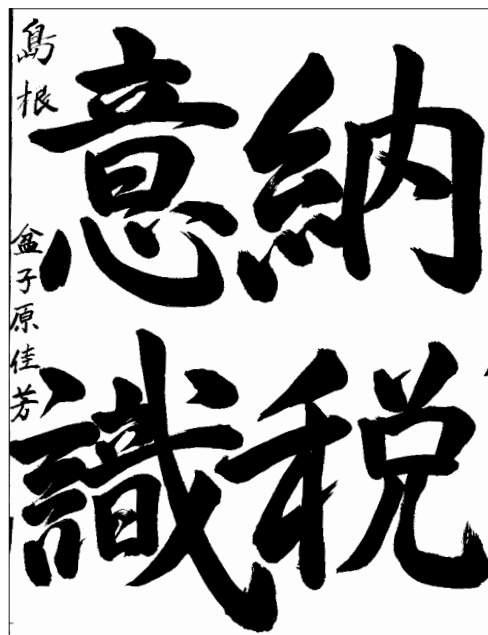 納税
意識
島根
盆子原佳芳